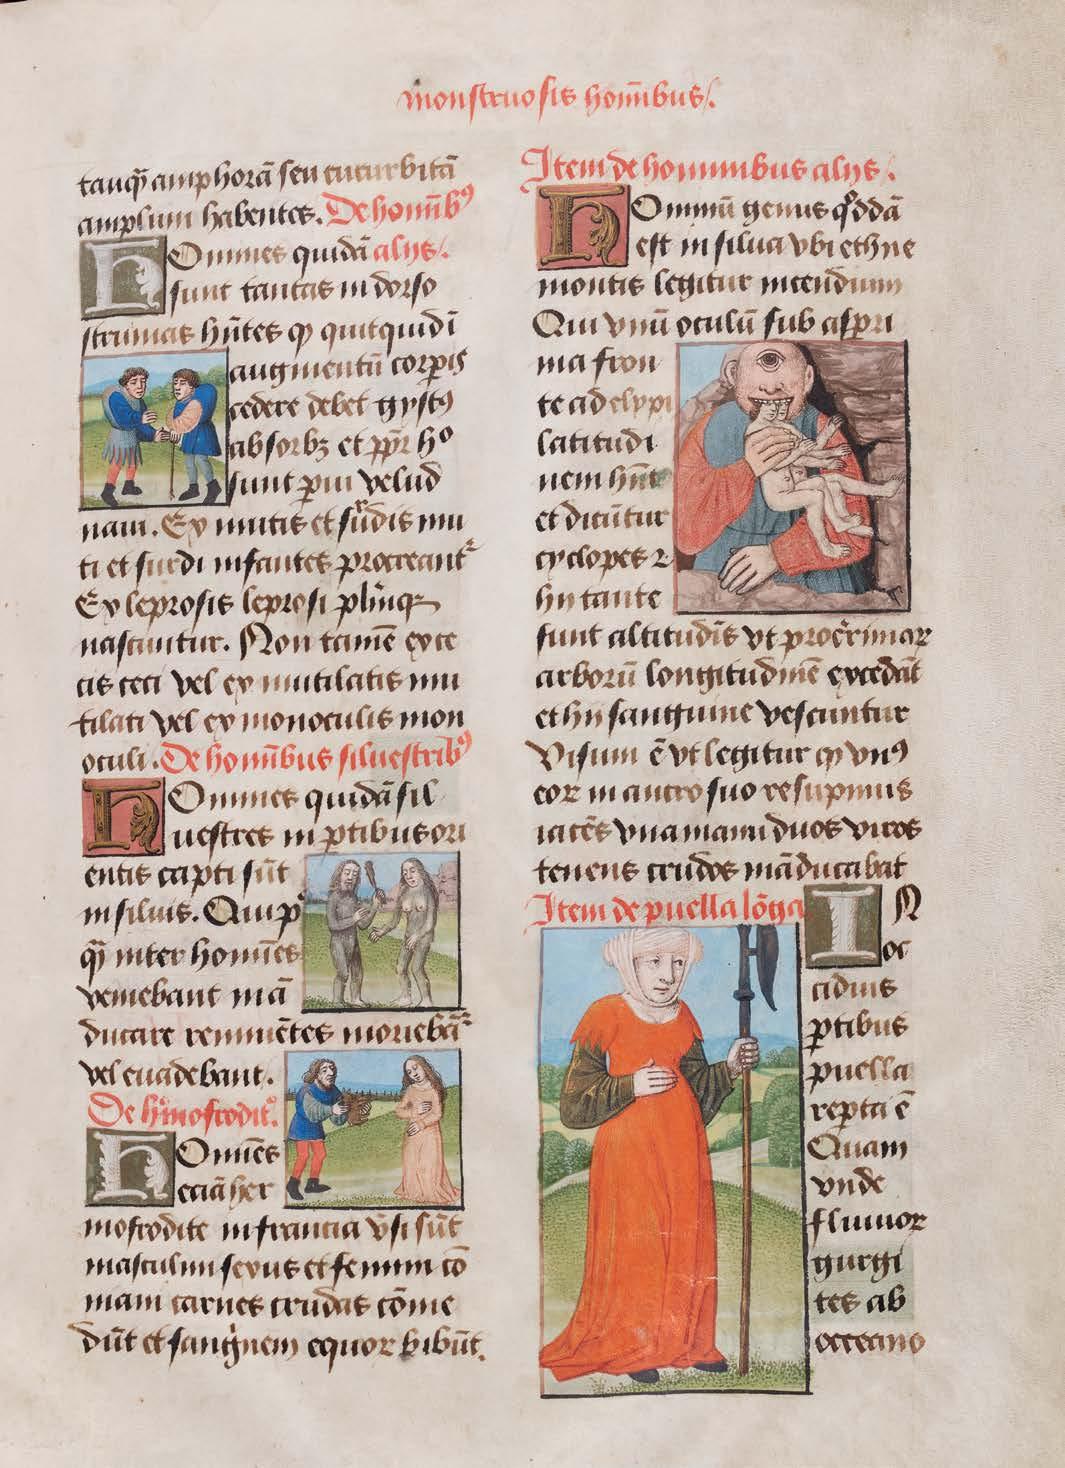 monstruosis homībus.
tanq̄ amphorā seu cucurbitā
amplum habentes. De homībꝰ
HOmines quidā alijs.
sunt tantas in dorso
strumas hn̄tes qꝫ quitquid ī
augmentū corꝑis
cedere debet
absorbꝫ et
sunt velud
nani. Ex mutis et surdis mu
ti et surdi infantes procreant
Ex leprosis leprosi
nascuntur. Non tamē exce
cis ceci vel ex mutilatis mu
tilati vel ex monoculis mon
oculi. De homībus siluestribꝰ
HOmines quidā sil
uestres in ꝑtibus ori
entis capti sūt
in siluis. Qui
inter homīes
veniebant mā
ducare
vel euadebant.
HOmīes
eciā her
mofrodite in francia vīsi sūt
masculini sexus et feminī co
mam carnes crudas cōme
dūt et sanguinem equor bibūt.
Item de hominibus alijs.
HOminū genus qͦddā
est in silua vbi ethne
montis legitur incendium
Qui vnū oculū sub asperi
ma fron
te ad clypi
latitudi
nem hn̄t
et dicūtur
cyclopes ⁊
hij tante
sunt altitudīs vt procerimar
arborū longitudinē excedāt
et hij sanguine vescuntur
Visum ē vt legitur qꝫ vnꝰ
eoꝝ in antro suo resupinus
iacēs vna manu duos viros
tenens crudos māducabat
Item de puella lōga
IN
oc
ciduis
ꝑtibus
puella
reꝑta ē
Quam
vnde
fluuior
gurgi
tes ab
occeano